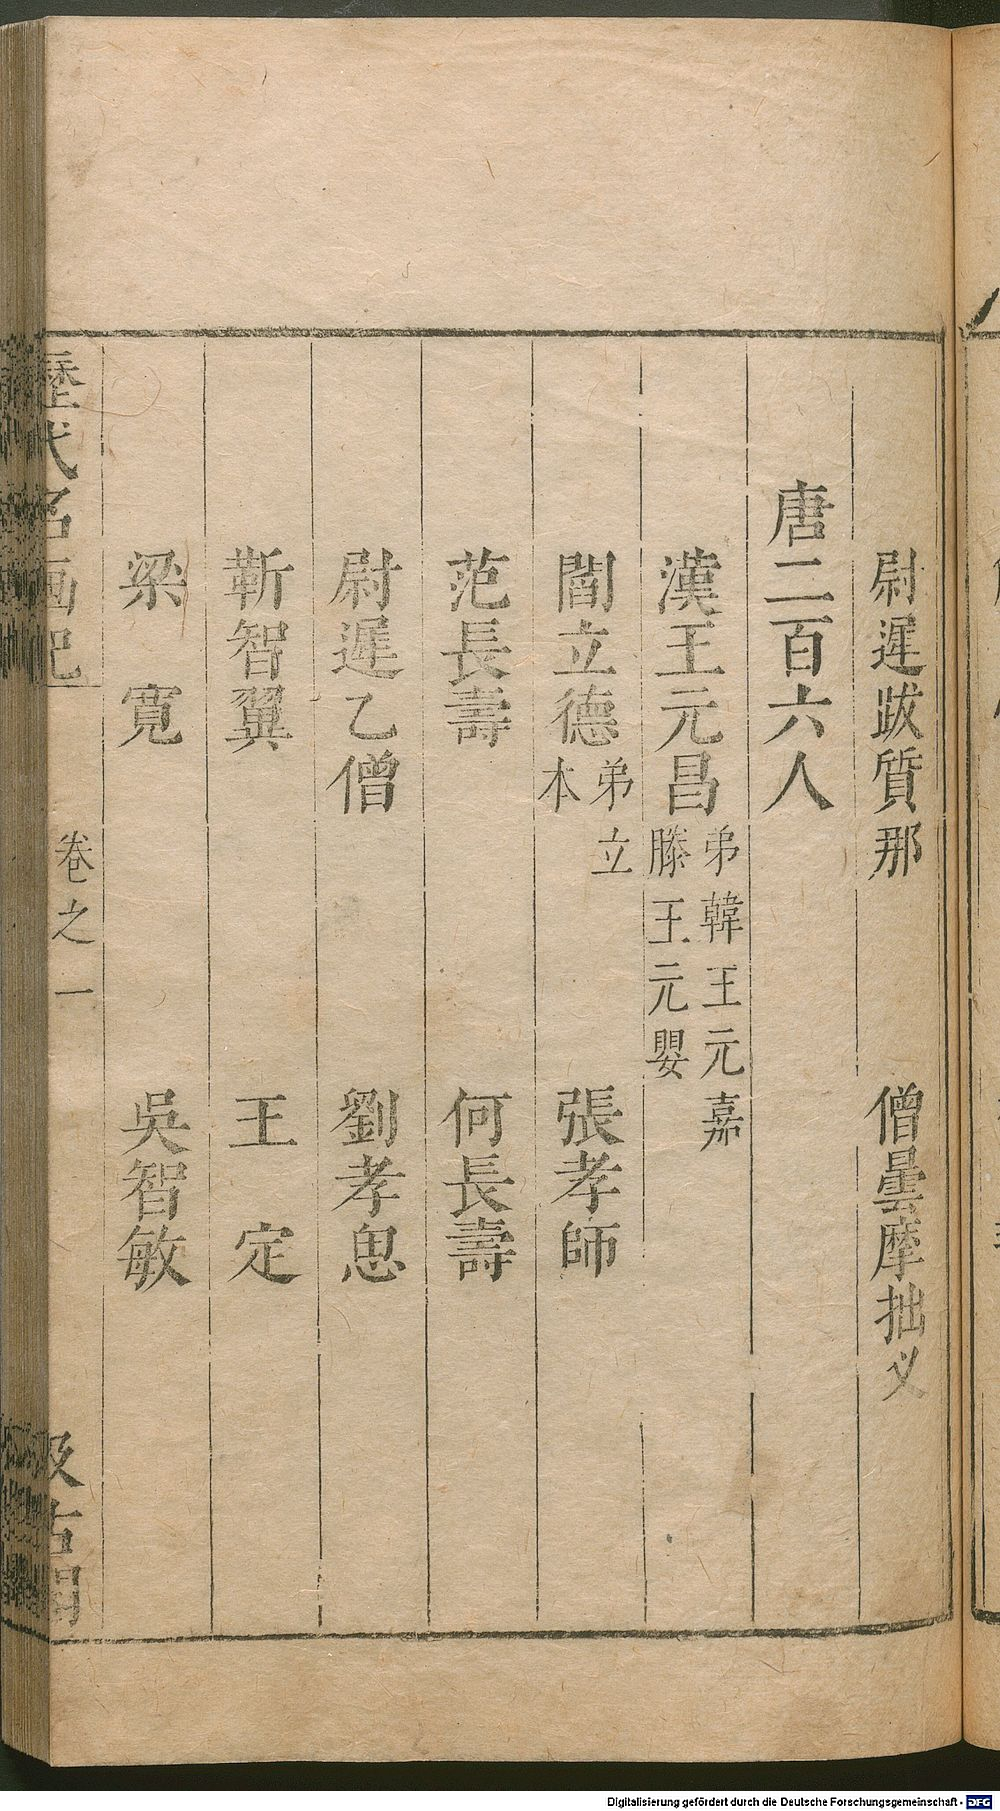 尉遲跋質那　僧曇摩拙义
唐二百六人
漢王元昌 弟韓王元嘉 滕王元嬰
閻立德 弟立本　張孝師
范長壽　何長壽
尉遲乙僧　劉孝思
靳智翼　王定
梁寬　吳智敏
歷代名画記　卷之一　汲古閣
Digitalisierung gefördert durch die Deutsche Forschungsgemeinschaft - DFG